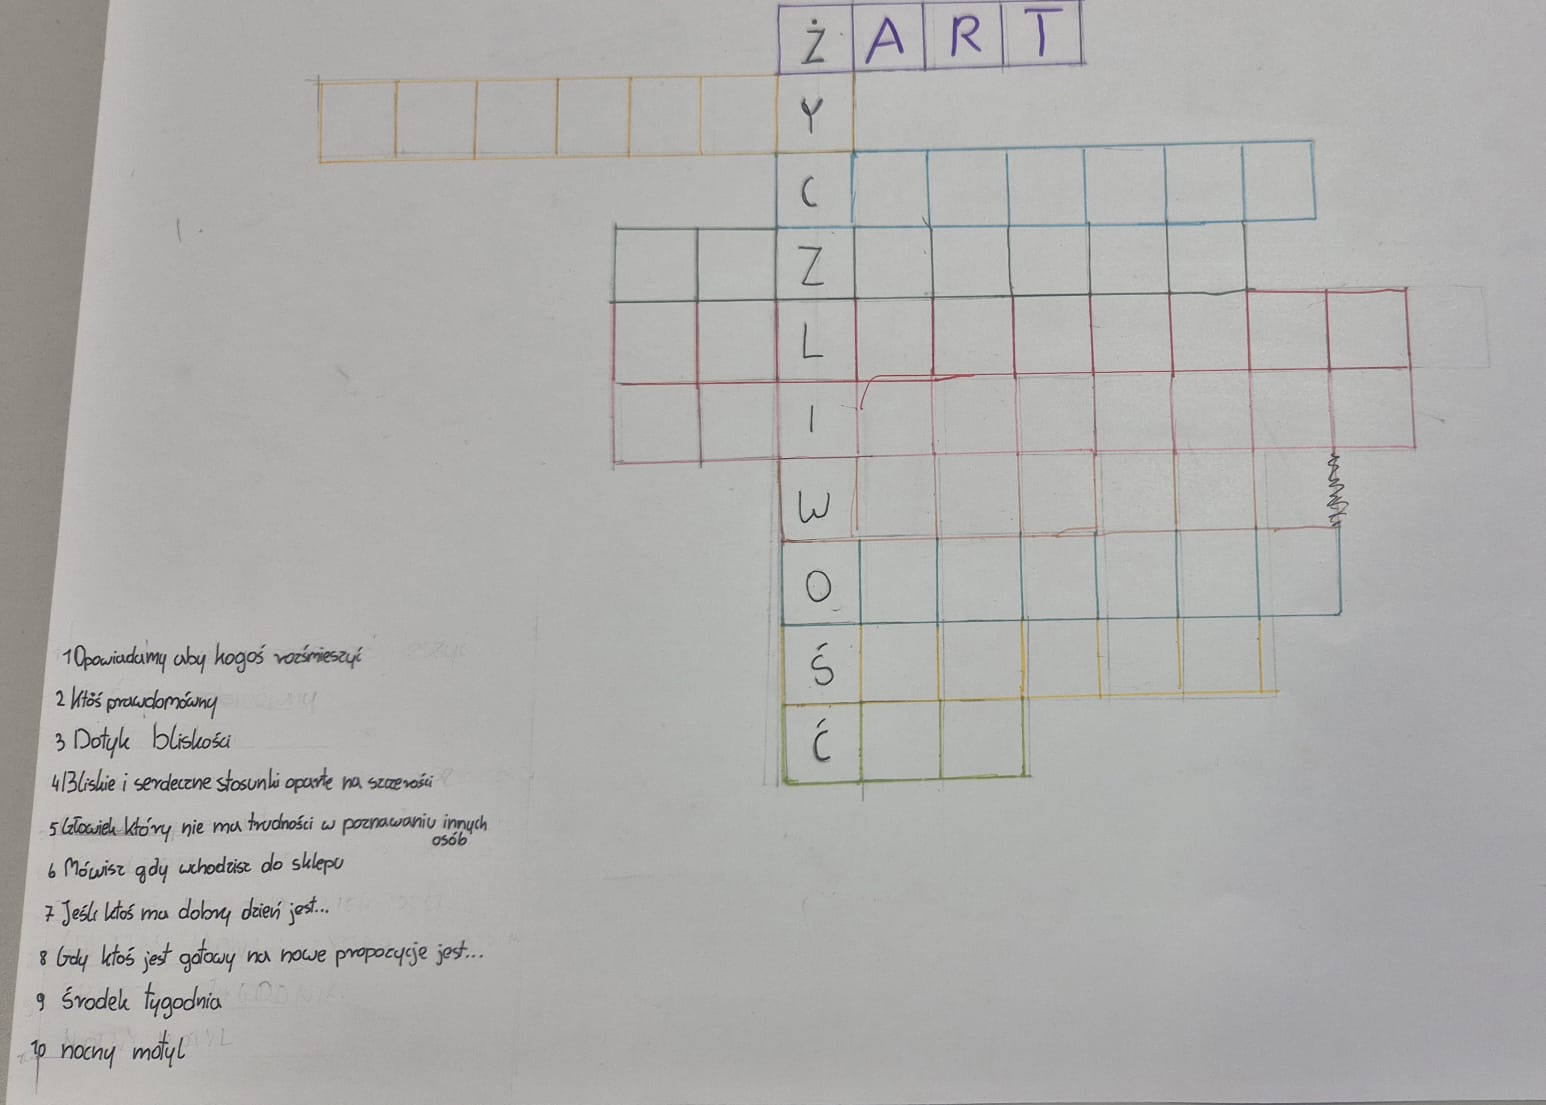 Ż A R T
Y
C
Z
L
I
W
O
Ś
Ć
1 Opowiadamy aby kogoś rozśmieszyć
2 Ktoś prawdomówny
3 Dotyk bliskości
4 Bliskie i serdeczne stosunki oparte na szczerości
5 Człowiek który nie ma trudności w poznawaniu innych
osób
6 Mówisz gdy wchodzisz do sklepu
7 Jeśli ktoś ma dobry dzień jest...
8 Gdy ktoś jest gotowy na nowe propozycje jest...
9 środek tygodnia
10 nocny motyl